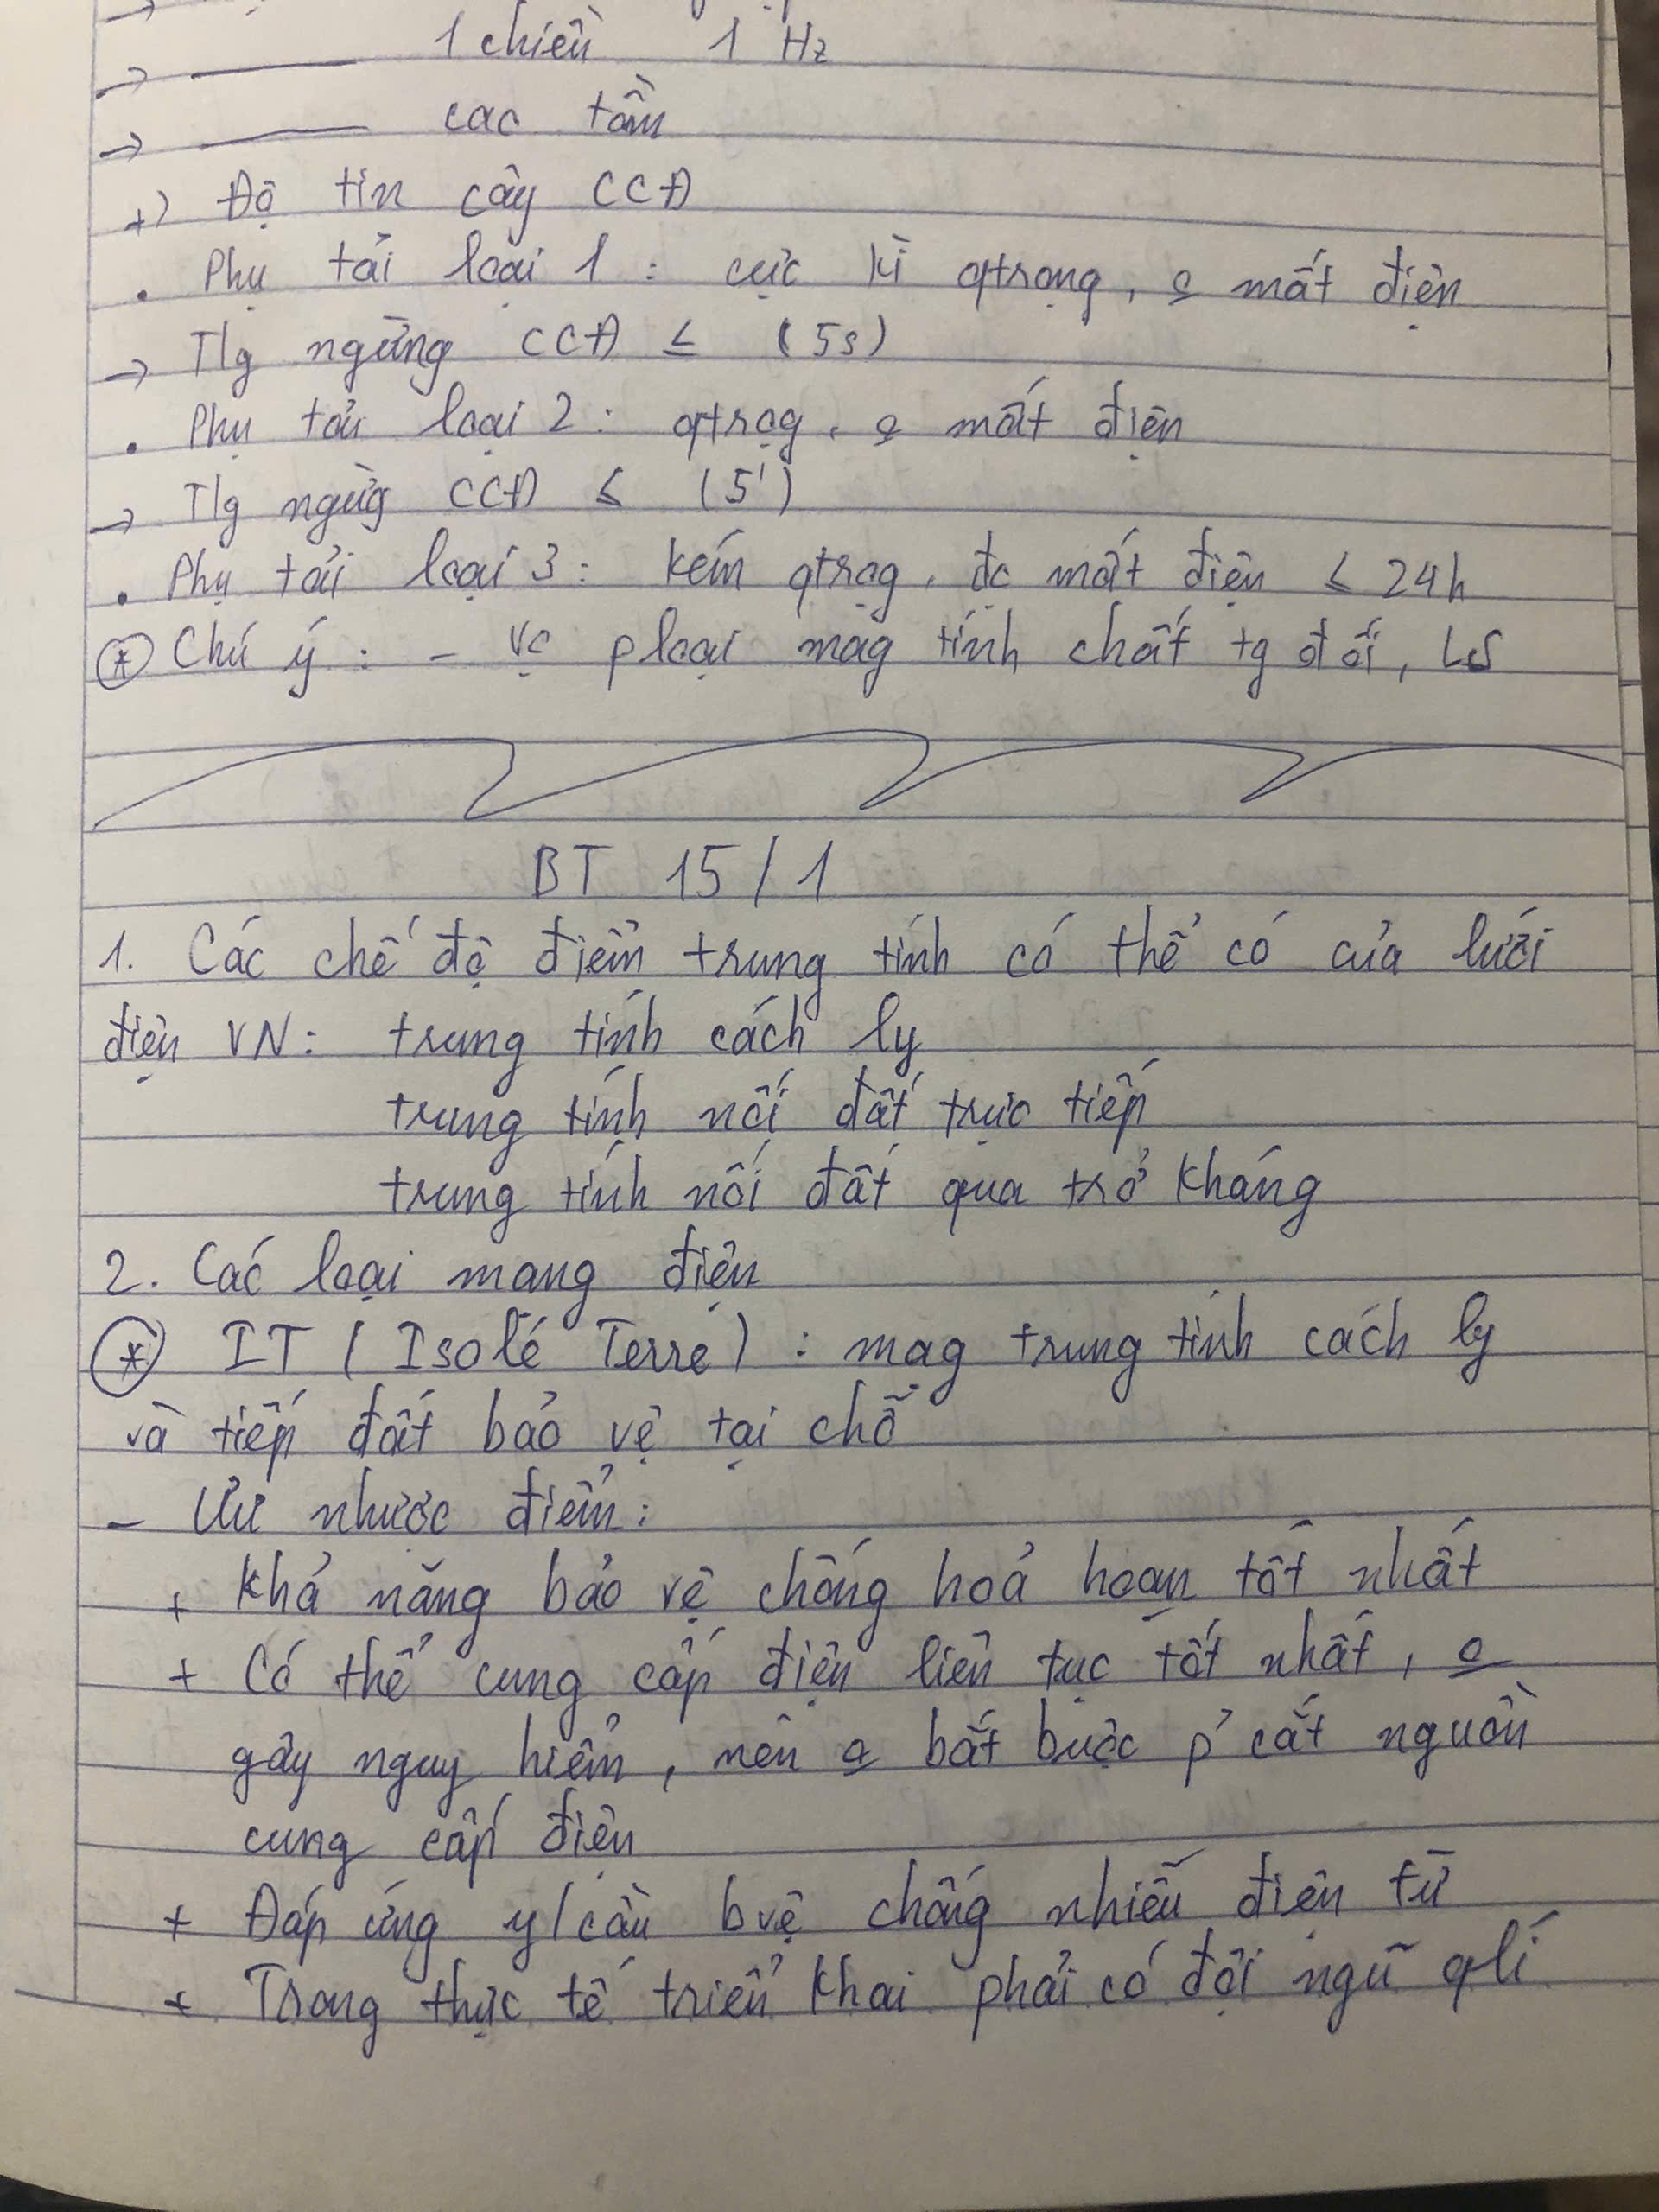 → 1 chiều 1 Hz
→ cao tần
+) Độ tin cậy CCĐ
. Phụ tải loại 1 : cực kì qtrọng, mất điện
→ Tlg ngừng CCĐ ≤ (5s)
. Phụ tải loại 2 : qtrọg, mất điện
→ Tlg ngừg CCĐ ≤ (5')
. Phụ tải loại 3 : kém qtrọg, đc mất điện ≤ 24h
* Chú ý : - Vc ploại mag tính chất tg đối, LS
BT 15/1
1. Các chế độ điểm trung tính có thể có của lưới
điện VN : trung tính cách ly
trung tính nối đất trực tiếp
trung tính nối đất qua trở kháng
2. Các loại mạng điện
* IT (Isolé Terre) : mạg trung tính cách ly
và tiếp đất bảo vệ tại chỗ
- Ưu nhược điểm :
+ Khả năng bảo vệ chống hoả hoạn tốt nhất
+ Có thể cung cấp điện liên tục tốt nhất,
gây nguy hiểm, nên bắt buộc p' cắt nguồn
cung cấp điện
+ Đáp ứng y/cầu bvệ chống nhiễu điện từ
+ Trong thực tế triển khai phải có đội ngũ qlí